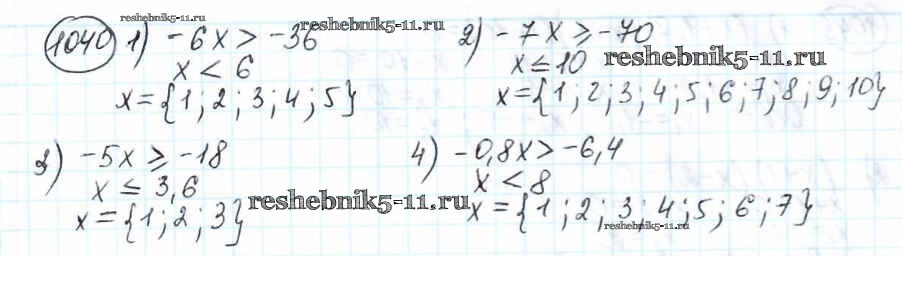 reshebnik5-11.ru
reshebnik5-11.ru
1040 1) -6x > -36
x < 6
x = {1; 2; 3; 4; 5}
2) -7x ≥ -70
x ≤ 10 reshebnik5-11.ru
x = {1; 2; 3; 4; 5; 6; 7; 8; 9; 10}
3) -5x ≥ -18
x ≤ 3,6
x = {1; 2; 3} reshebnik5-11.ru
4) -0,8x > -6,4
x < 8
x = {1; 2; 3; 4; 5; 6; 7}
reshebnik5-11.ru